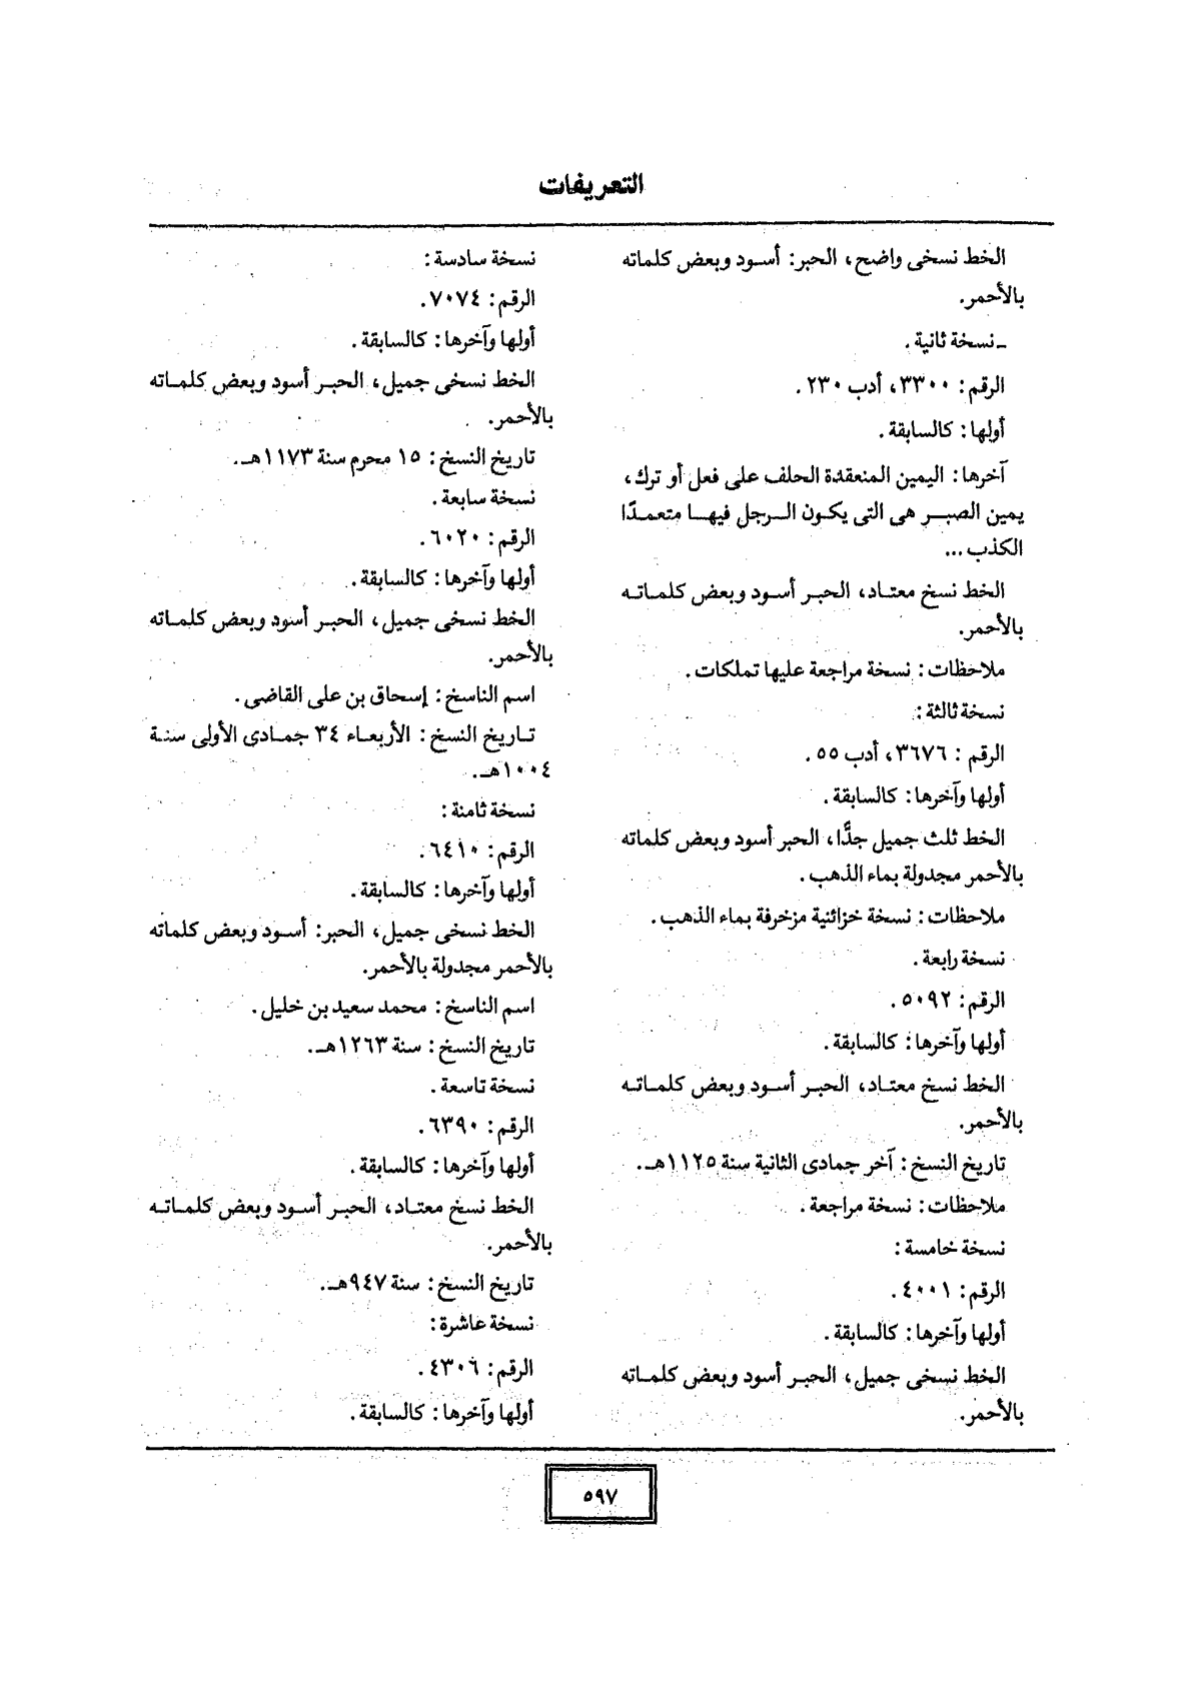 التعريفات
الخط نسخى واضح، الحبر: أسود وبعض كلماته
بالأحمر.
ـ نسخة ثانية.
الرقم: ٣٣٠٠، أدب ٢٣٠.
أولها: كالسابقة.
آخرها: اليمين المنعقدة الحلف على فعل أو ترك،
يمين الصبر هى التى يكون الرجل فيها متعمدًا
الكذب ...
الخط نسخ معتاد، الحبر أسود وبعض كلماته
بالأحمر.
ملاحظات: نسخة مراجعة عليها تملكات.
نسخة ثالثة:
الرقم: ٣٦٧٦، أدب ٥٥.
أولها وآخرها: كالسابقة.
الخط ثلث جميل جدًّا، الحبر أسود وبعض كلماته
بالأحمر مجدولة بماء الذهب.
ملاحظات: نسخة خزائنية مزخرفة بماء الذهب.
نسخة رابعة.
الرقم: ٥٠٩٢.
أولها وآخرها: كالسابقة.
الخط نسخ معتاد، الحبر أسود وبعض كلماته
بالأحمر.
تاريخ النسخ: آخر جمادى الثانية سنة ١١٢٥هـ.
ملاحظات: نسخة مراجعة.
نسخة خامسة:
الرقم: ٤٠٠١.
أولها وآخرها: كالسابقة.
الخط نسخى جميل، الحبر أسود وبعض كلماته
بالأحمر.
نسخة سادسة:
الرقم: ٧٠٧٤.
أولها وآخرها: كالسابقة.
الخط نسخى جميل، الحبر أسود وبعض كلماته
بالأحمر.
تاريخ النسخ: ١٥ محرم سنة ١١٧٣هـ.
نسخة سابعة.
الرقم: ٦٠٢٠.
أولها وآخرها: كالسابقة.
الخط نسخى جميل، الحبر أسود وبعض كلماته
بالأحمر.
اسم الناسخ: إسحاق بن على القاضى.
تاريخ النسخ: الأربعاء ٣٤ جمادى الأولى سنة
١٠٠٤هـ.
نسخة ثامنة:
الرقم: ٦٤١٠.
أولها وآخرها: كالسابقة.
الخط نسخى جميل، الحبر: أسود وبعض كلماته
بالأحمر مجدولة بالأحمر.
اسم الناسخ: محمد سعيد بن خليل.
تاريخ النسخ: سنة ١٢٦٣هـ.
نسخة تاسعة.
الرقم: ٦٣٩٠.
أولها وآخرها: كالسابقة.
الخط نسخ معتاد، الحبر أسود وبعض كلماته
بالأحمر.
تاريخ النسخ: سنة ٩٤٧هـ.
نسخة عاشرة:
الرقم: ٤٣٠٦.
أولها وآخرها: كالسابقة.
٥٩٧